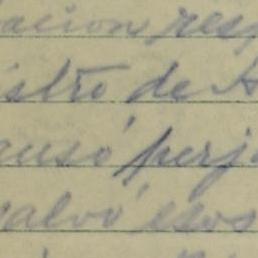 acion resp
istro de A
ausó perj
salvó esos